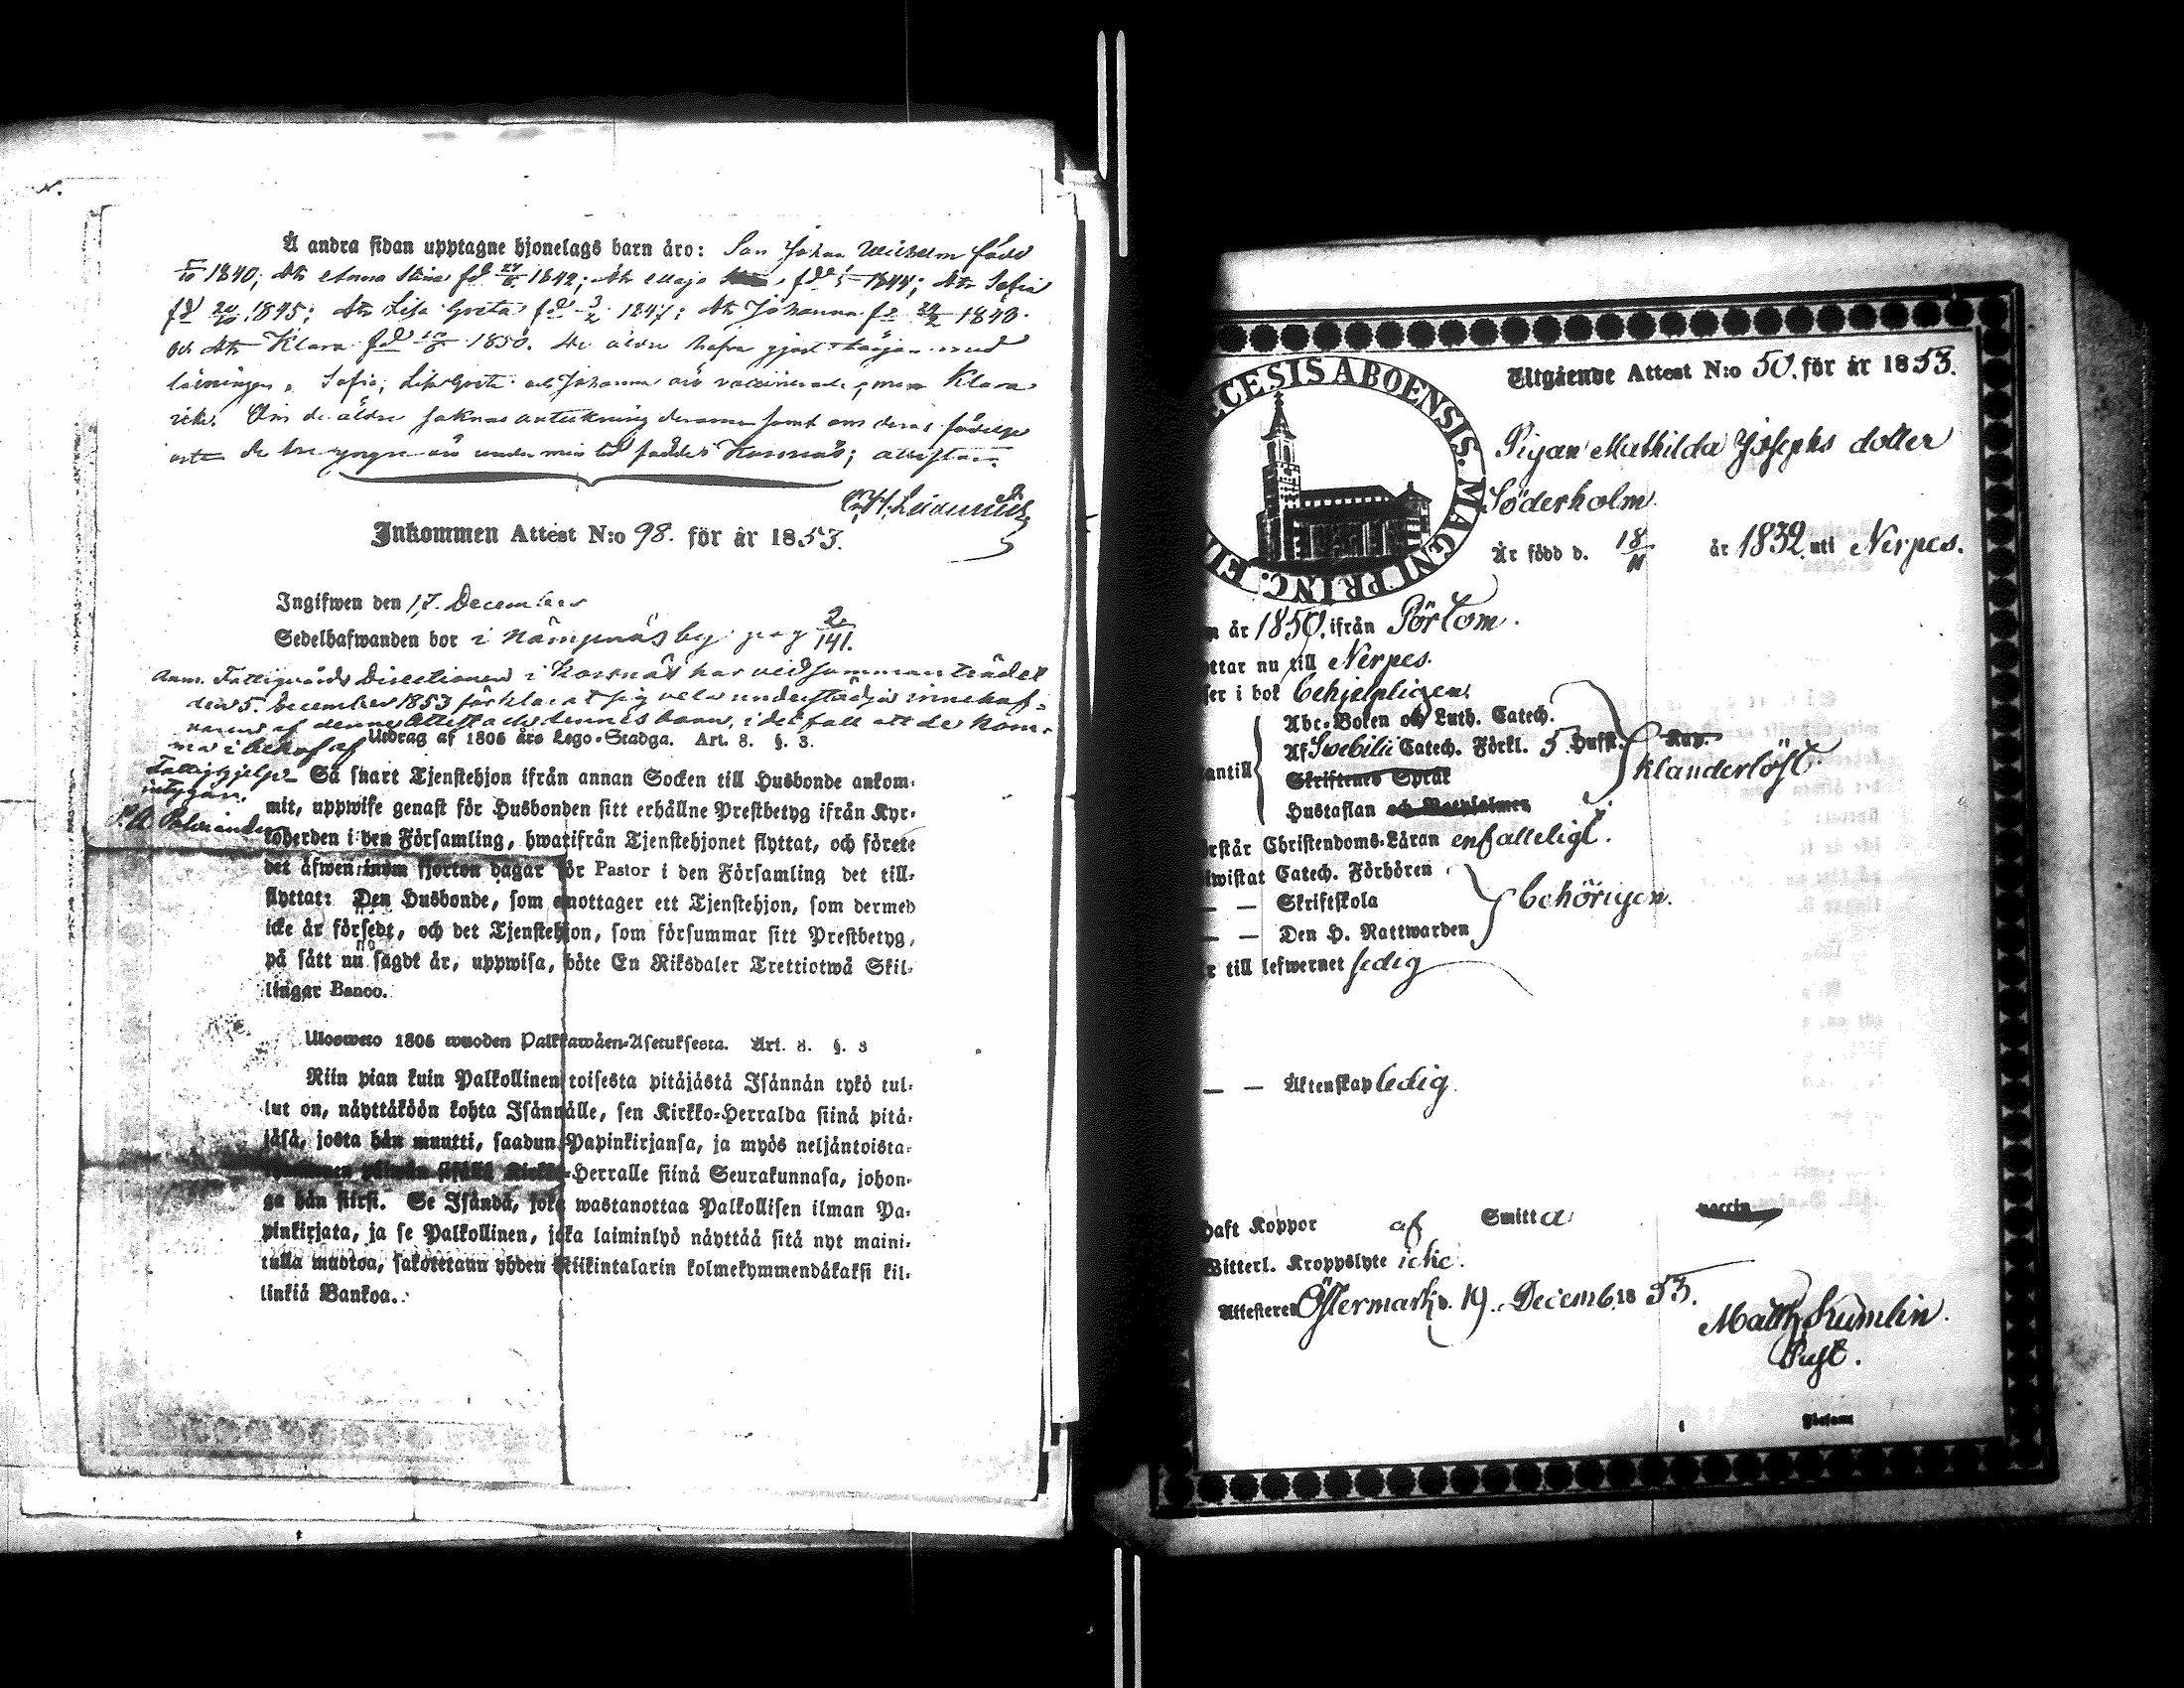 Å andra sidan upptagne hjonelags barn äro: Son Johan Wilhelm född
1840; dtr Anna Stina fd 1842; dtr Maja fd 1844; dtr Sofia
fd 1845; dtr Lisa Greta fd 3/2 1847; dtr Johanna fd 1849
och dtr Klara fd 1850. De äldre hafva gjort början med
läsningen. Sofia, Lisa Greta och Johanna äro vaccinerade, men Klara
icke. Om de äldre saknas anteckning derom samt om deras födelse
ort. De tre yngre äro under min tid födde i Korsnäs; attesterar
Inkommen Attest N:o 98. för år 1853.
Ingifwen den 17. December
Sedelhafwanden bor i Nämpnäs by pag 2/141.
Anm. Fattigvårds Directionen i Korsnäs har vid sammanträdet
den 5. December 1853 förklarat sig vela understödja innehaf-
varens af denna attest och dennes barn, i det fall att de kom-
ma i behof af
Fattighjelp
intygar.
Utdrag af 1805 års Lego-Stadga. Art. 8. §. 3.
Så snart Tjenstehjon ifrån annan Socken till Husbonde ankom-
mit, uppwise genast för Husbonden sitt erhållne Prestbetyg ifrån Kyr-
koherden i den Församling, hwarifrån Tjenstehjonet flyttat, och förete
det äfwen inom fjorton dagar för Pastor i den Församling det till-
flyttat: Den Husbonde, som emottager ett Tjenstehjon, som dermed
icke är försedt, och det Tjenstehjon, som försummar sitt Prestbetyg,
på sätt nu sagdt är, uppwisa, böte En Riksdaler Trettiotwå Skil-
lingar Banco.
Ulosweto 1805 wuoden Palkkawäen-Asetuksesta. Art. 8. §. 3
Niin pian kuin Palkollinen toisesta pitäjästä Isännän tykö tul-
lut on, näyttäköön kohta Isännälle, sen Kirkko-Herralda siinä pitä-
jäsä, josta hän muutti, saadun Papinkirjansa, ja myös neljäntoista-
Herralle siinä Seurakunnasa, johon-
ga hän siirsi. Se Isändä, joka wastanottaa Palkollisen ilman Pa-
pinkirjata, ja se Palkollinen, joka laiminlyö näyttää sitä nyt maini-
tulla muotoa, sakotetaan yhden Riikintalarin kolmekymmendäkaksi kil-
linkiä Bankoa.
ECESIS ABOENSIS. MAGNI PRINC. FI
Utgående Attest N:o 50. för år 1853.
Pigan Mathilda Josephs dotter
Söderholm.
Är född d. 18/11 år 1832. uti Nerpes.
år 1850. ifrån Pörtom.
ttar nu till Nerpes.
ser i bok behjelpligen
Abc-Boken och Luth. Catech.
Af Svebilii Catech. Förkl. 5. Hufst.
Skriftenes Språk
Hustaflan
antill
klanderlöst.
rstår Christendoms-Läran enfalleligt.
wistat Catech. Förhören
— — Skriftskola
— — Den H. Nattwarden
behörigen.
r till lefwernet sedig
— — Äktenskap ledig.
haft Koppor af Smitta vaccin
Witterl. Kroppslyte icke.
Attesteres Östermark d. 19. Decemb. 1853.
Matth Kumlin.
Past.